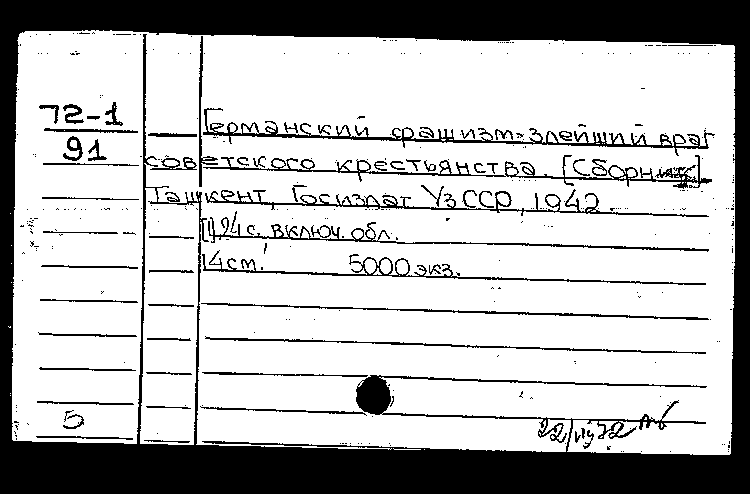 72-1
91
Германский фашизм-злейший враг
советского крестьянства. [Сборник]
Ташкент, Госиздат УзССР, 1942.
24 с. включ. обл.
14 см. 5000 экз.
5